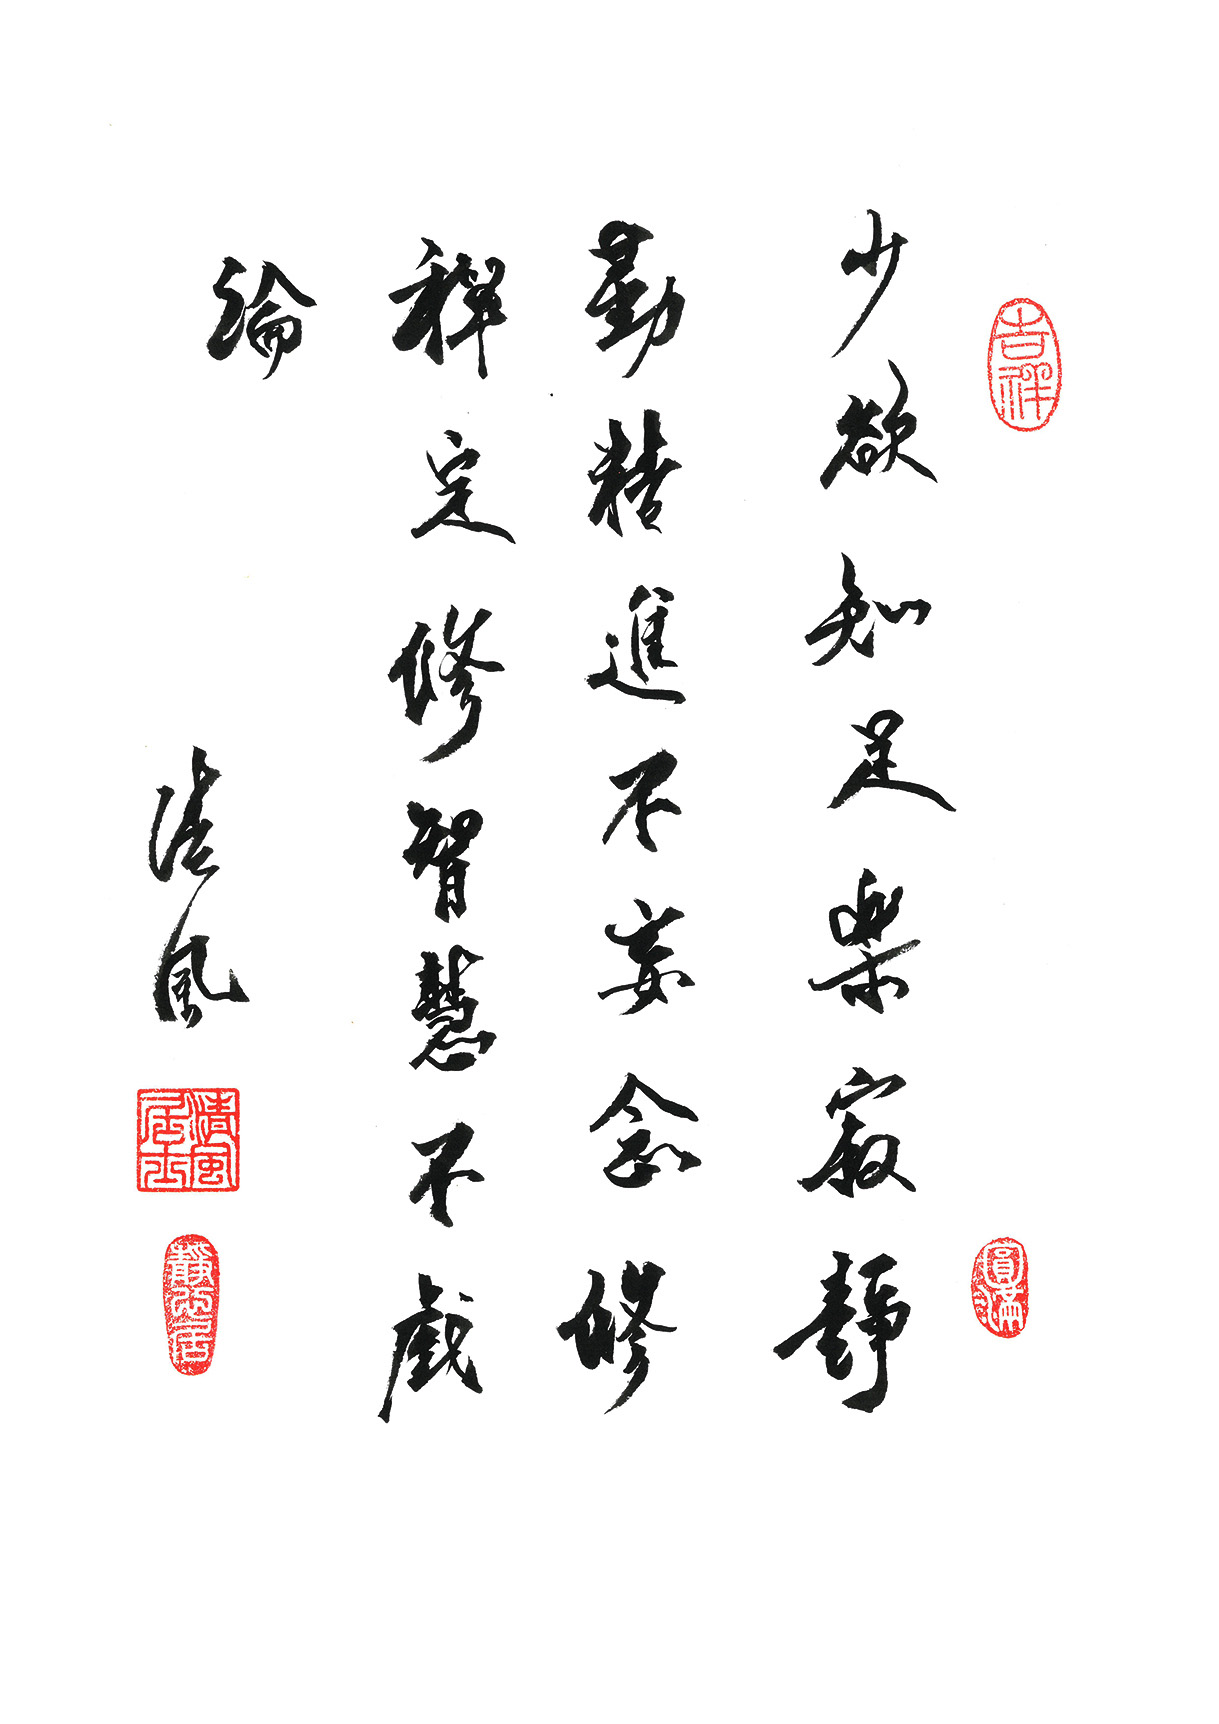 少欲知足樂寂靜
勤精進不妄念修
禪定修智慧不戲
論
清風
吉祥
圓滿
清風居士